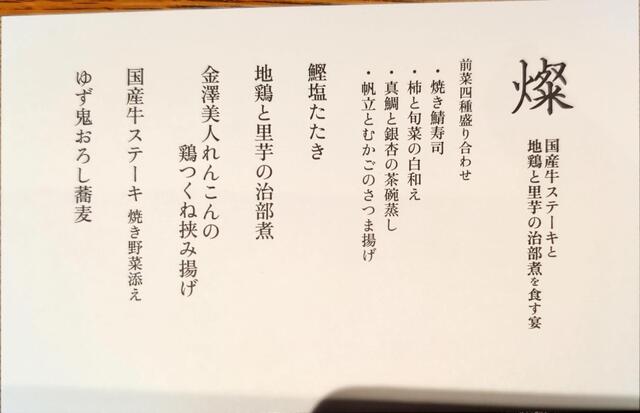 燦
国産牛ステーキと
地鶏と里芋の治部煮を食す宴
前菜四種盛り合わせ
・焼き鯖寿司
・柿と旬菜の白和え
・真鯛と銀杏の茶碗蒸し
・帆立とむかごのさつま揚げ
鰹塩たたき
地鶏と里芋の治部煮
金澤美人れんこんの
鶏つくね挟み揚げ
国産牛ステーキ 焼き野菜添え
ゆず鬼おろし蕎麦